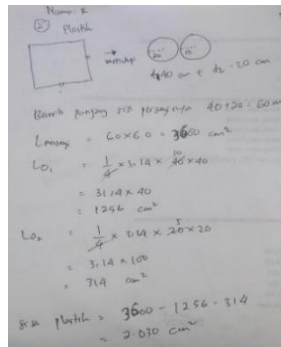 Nama: R
② Plastik
→ menutup 20 10
d₁ 40 cm + d₂ = 20 cm
Berarti panjang sisi perseginya 40+20 = 60 cm
L persegi = 60×60 = 3600 cm²
LO₁ = 1/4 × 3,14 × 40 10 × 40
= 31,4 × 40
= 1256 cm²
LO₂ = 1/4 × 3,14 × 20 5 × 20
= 3,14 × 100
= 314 cm²
Sisa plastik = 3600 - 1256 - 314
= 2.030 cm²